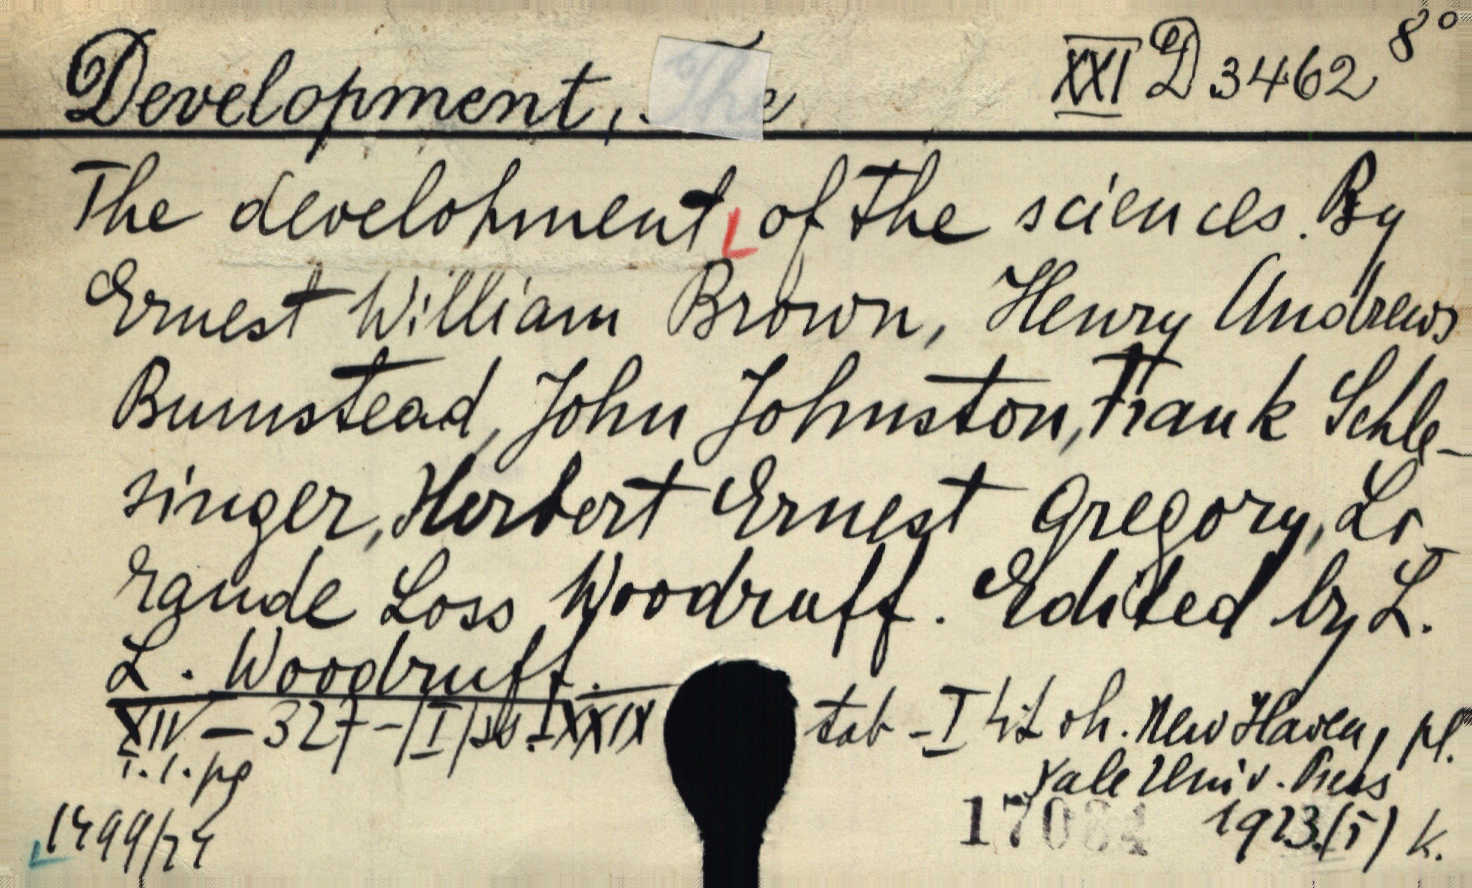 Development, The XXI D 3462 8°
The development of the sciences. By
Ernest William Brown, Henry Andrews
Bumstead, John Johnston, Frank Schle-
singer, Herbert Ernest Gregory, Lo
rande Loss Woodruff. Edited by L.
L. Woodruff.
XIV – 327 – tab – I New Haven, pl.
Yale Univ. Press
1499/24 1923.(5) k.